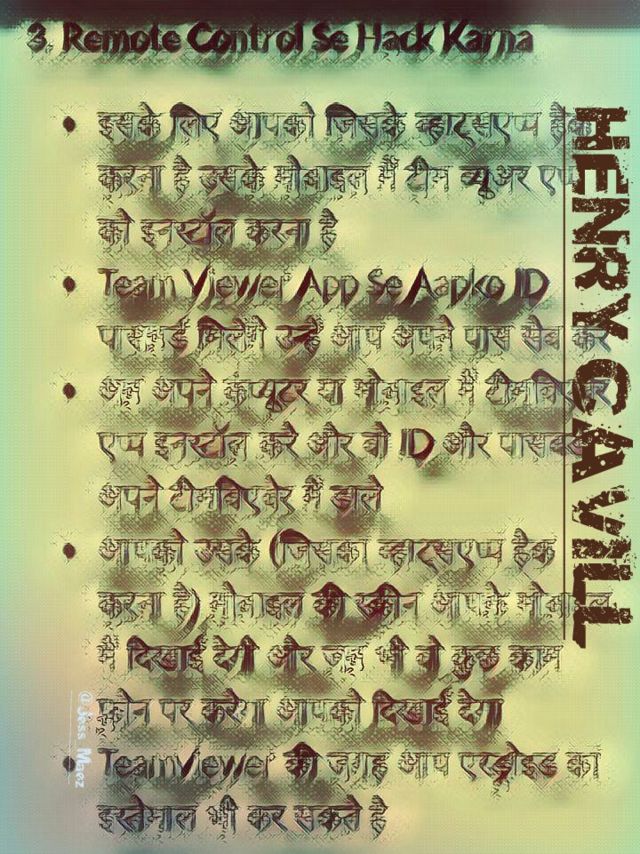 3. Remote Control Se Hack Karna
इसके लिए आपको जिसके व्हाट्सएप्प हैक
करना है उसके मोबाइल मैं टीम व्यूअर एप्प
को इनस्टॉल करना है
Team Viewer App Se Aapko ID
पासवर्ड मिलेंगे उन्हैं आप अपने पास सेव कर
अब अपने कंप्यूटर या मोबाइल मैं टीमविएवर
एप्प इनस्टॉल करै और वो ID और पासवर्ड
अपने टीमविएवेर मैं डाले
आपको उसके (जिसका व्हाट्सएप्प हैक
करना है) मोबाइल की स्क्रीन आपके मोबाइल
मैं दिखाई देगी और जब भी वो कुछ काम
फ़ोन पर करेगा आपको दिखाई देगा
TeamViewer की जगह आप एरड्रोइड का
इस्तेमाल भी कर सकते है
HENRY CAVILL
@Jess Maez